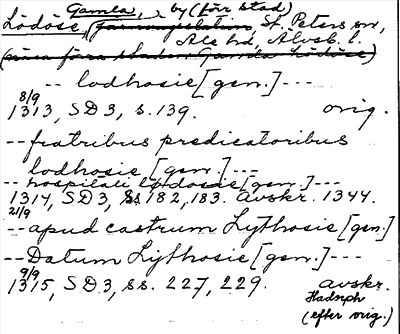 Gamla, by (förr stad)
Lödöse, St. Peters sn,
Ale hd, Älvsb. l.
-- lodhosie [gen.] ---
8/9
1313, SD3, s. 139. orig.
-- fratribus predicatoribus
lodhosie [gen.] ---
-- hospitali lødosie [gen.] ---
1314, SD3, ss 182, 183. avskr. 1344.
21/9
-- apud castrum Lythosie [gen.]
-- Datum Lythosie [gen.] ---
9/9
1315, SD3, ss. 227, 229. avskr.
Hadorph
(efter orig.)